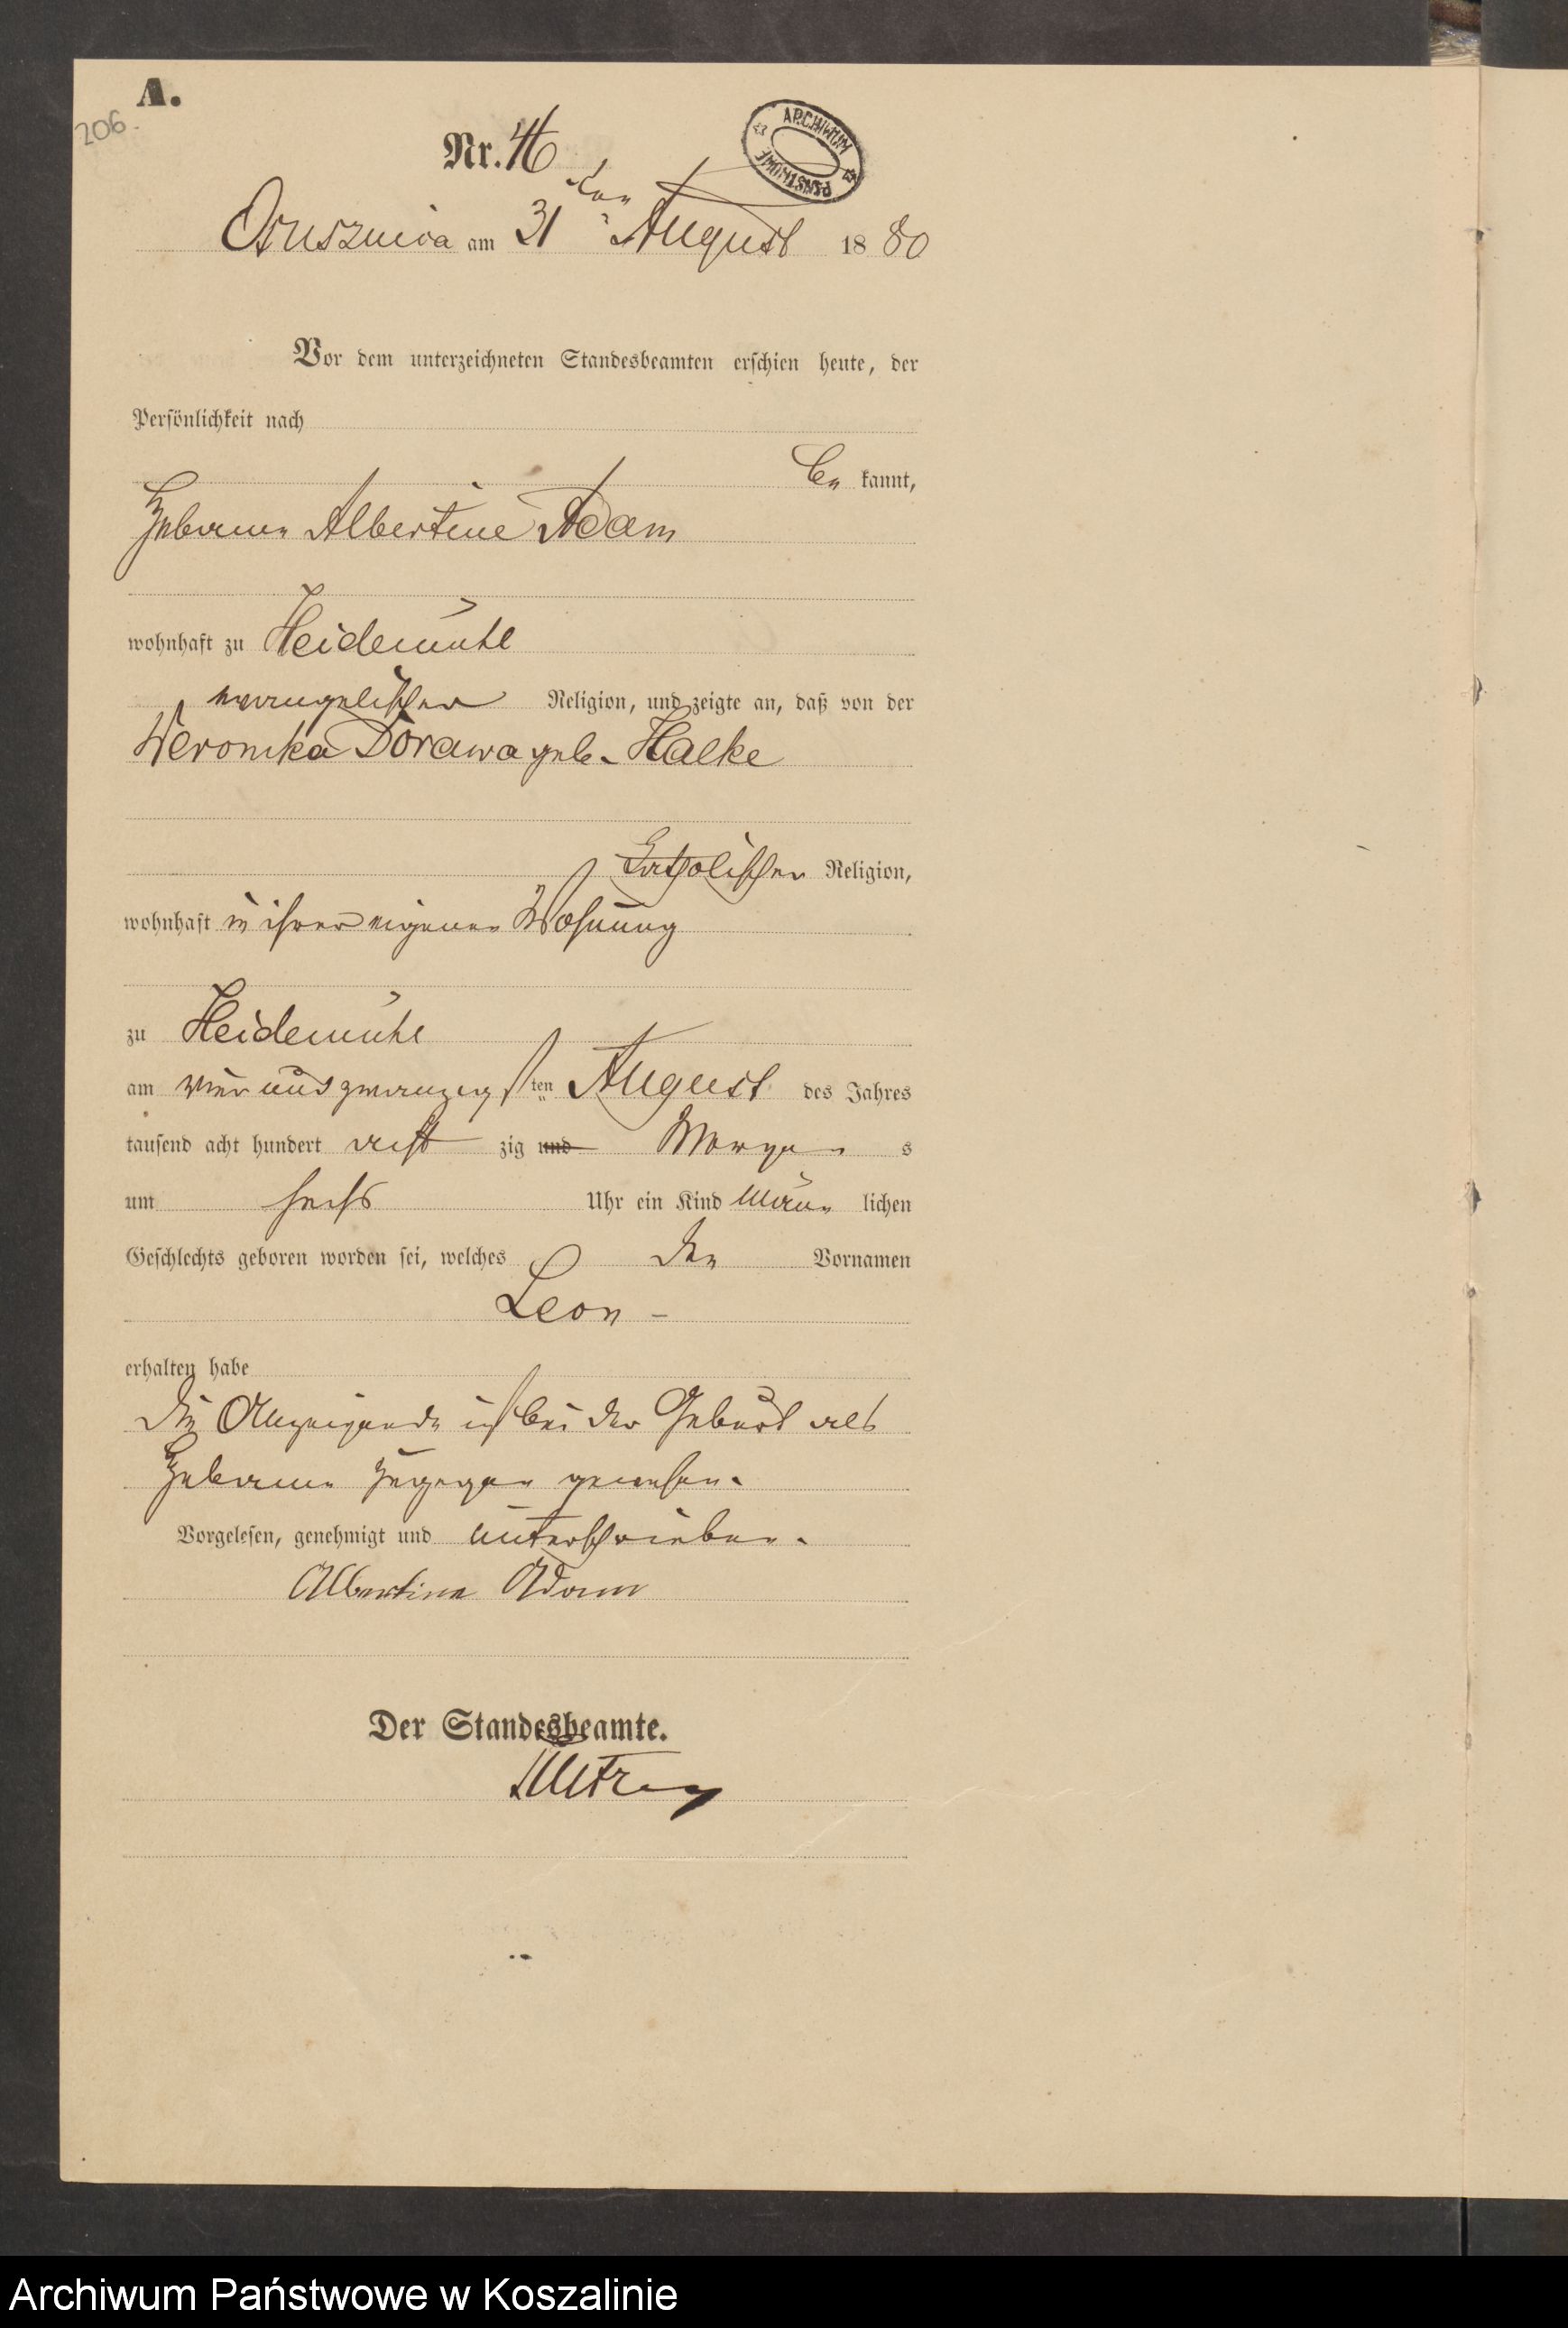 A.
206.
Nr. 46
ARCHIWUM
PAŃSTWOWE
Osusznica am 31ten August 1880
Vor dem unterzeichneten Standesbeamten erschien heute, der
Persönlichkeit nach
be kannt,
Hebamme Albertine Adam
wohnhaft zu Heidemühl
evangelischer Religion, und zeigte an, daß von der
Weronika Dorawa geb. Halke
katholischer Religion,
wohnhaft in ihrer eigenen Wohnung
zu Heidemühl
am vier und zwanzigsten August des Jahres
tausend acht hundert acht zig und Morgen s
um sechs Uhr ein Kind männ lichen
Geschlechts geboren worden sei, welches den Vornamen
Leon –
erhalten habe
Die Anzeigende ist bei der Geburt als
Hebamme zugegen gewesen.
Vorgelesen, genehmigt und unterschrieben.
Albertine Adam
Der Standesbeamte.
Archiwum Państwowe w Koszalinie